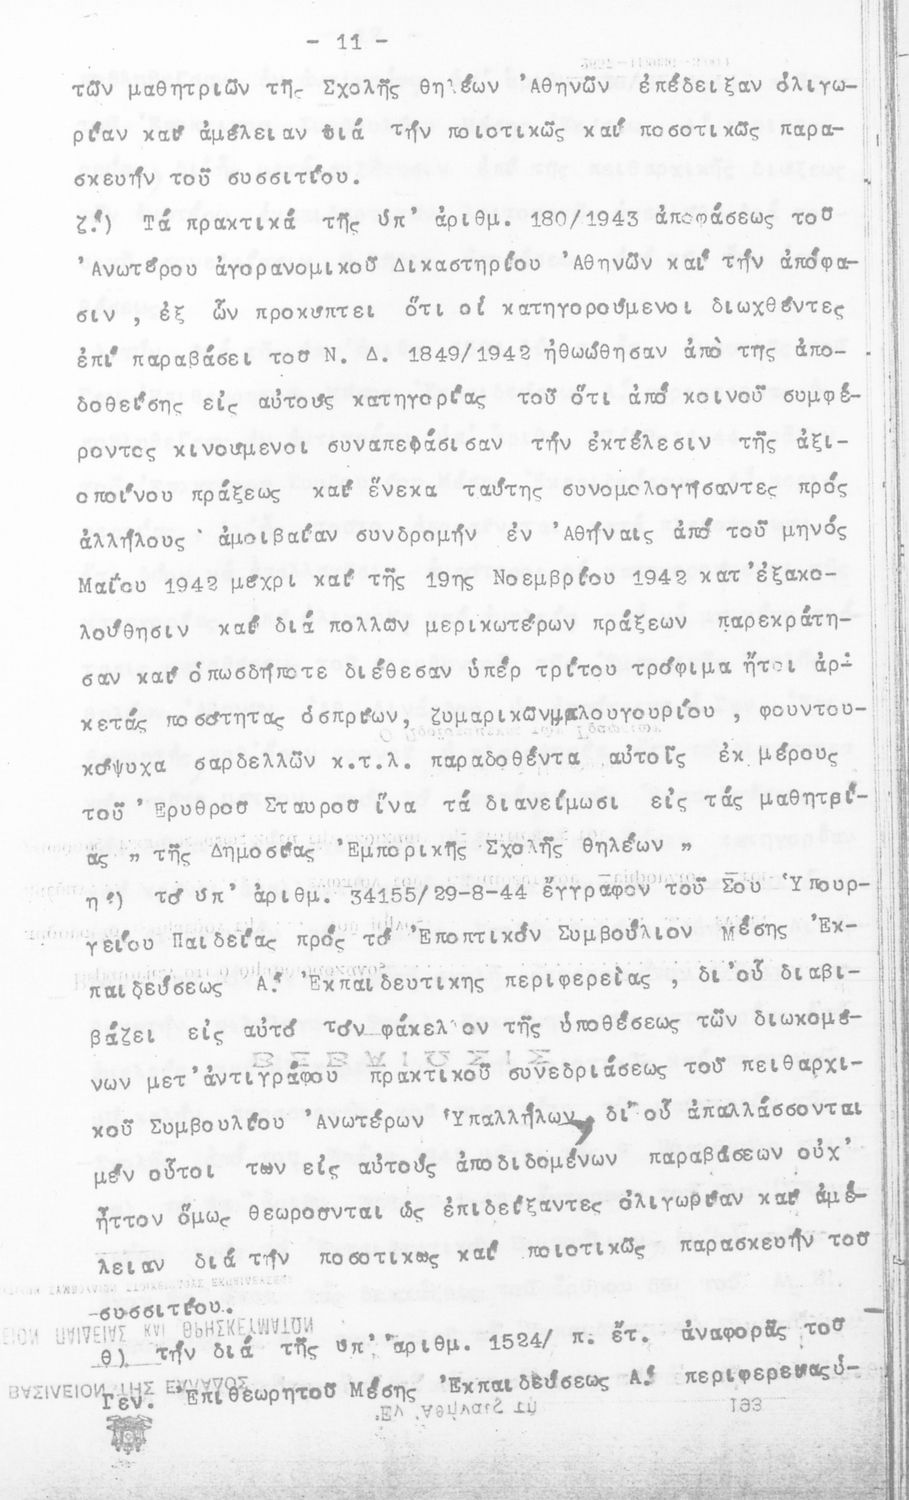 - 11 -
τῶν μαθητριῶν τῆς Σχολῆς θηλέων Ἀθηνῶν ἐπέδειξαν ὀλιγω-
ρίαν καί ἀμέλειαν διά τήν ποιοτικῶς καί ποσοτικῶς παρα-
σκευήν τοῦ συσσιτίου.
ζ!) Τά πρακτικά τῆς ὑπ' ἀριθμ. 180/1943 ἀποφάσεως τοῦ
Ἀνωτέρου ἀγορανομικοῦ Δικαστηρίου Ἀθηνῶν καί τήν ἀπόφα-
σιν , ἐξ ὧν προκύπτει ὅτι οἱ κατηγορούμενοι διωχθέντες
ἐπί παραβάσει τοῦ Ν. Δ. 1849/1942 ἠθωώθησαν ἀπὸ τῆς ἀπο-
δοθείσης εἰς αὐτούς κατηγορίας τοῦ ὅτι ἀπό κοινοῦ συμφέ-
ροντος κινούμενοι συναπεφάσισαν τήν ἐκτέλεσιν τῆς ἀξι-
οποίνου πράξεως καί ἕνεκα ταύτης συνομολογήσαντες πρός
ἀλλήλους ἀμοιβαίαν συνδρομήν ἐν Ἀθήναις ἀπό τοῦ μηνός
Μαΐου 1942 μέχρι καί τῆς 19ης Νοεμβρίου 1942 κατ' ἐξακο-
λούθησιν καί διά πολλῶν μερικωτέρων πράξεων παρεκράτη-
σαν καί ὁπωσδήποτε διέθεσαν ὑπέρ τρίτου τρόφιμα ἤτοι ἀρ-
κετάς ποσότητας ὀσπρίων, ζυμαρικῶν, πλουγουρίου , φουντου-
κόψυχα σαρδελλῶν κ.τ.λ. παραδοθέντα αὐτοῖς ἐκ μέρους
τοῦ Ἐρυθροῦ Σταυροῦ ἵνα τά διανείμωσι εἰς τάς μαθητρί-
ας " τῆς Δημοσίας Ἐμπορικῆς Σχολῆς θηλέων "
η!) τό ὑπ' ἀριθμ. 34155/29-8-44 ἔγγραφον τοῦ Σοῦ Ὑπουρ-
γείου Παιδείας πρός τό Ἐποπτικόν Συμβούλιον Μέσης Ἐκ-
παιδεύσεως Α! Ἐκπαιδευτικῆς περιφερείας , δι' οὗ διαβι-
βάζει εἰς αὐτό τόν φάκελλον τῆς ὑποθέσεως τῶν διωκομέ-
νων μετ' ἀντιγράφου πρακτικοῦ συνεδριάσεως τοῦ πειθαρχι-
κοῦ Συμβουλίου Ἀνωτέρων Ὑπαλλήλων, δι' οὗ ἀπαλλάσσονται
μέν οὗτοι τῶν εἰς αὐτούς ἀποδιδομένων παραβάσεων οὐχ'
ἧττον ὅμως θεωροῦνται ὡς ἐπιδείξαντες ὀλιγωρίαν καί ἀμέ-
λειαν διά τήν ποσοτικῶς καί ποιοτικῶς παρασκευήν τοῦ
συσσιτίου.
θ) τήν διά τῆς ὑπ' ἀριθμ. 1524/ π. ἔτ. ἀναφορᾶς τοῦ
Γεν. Ἐπιθεωρητοῦ Μέσης Ἐκπαιδεύσεως Α! περιφερείας ὑ-